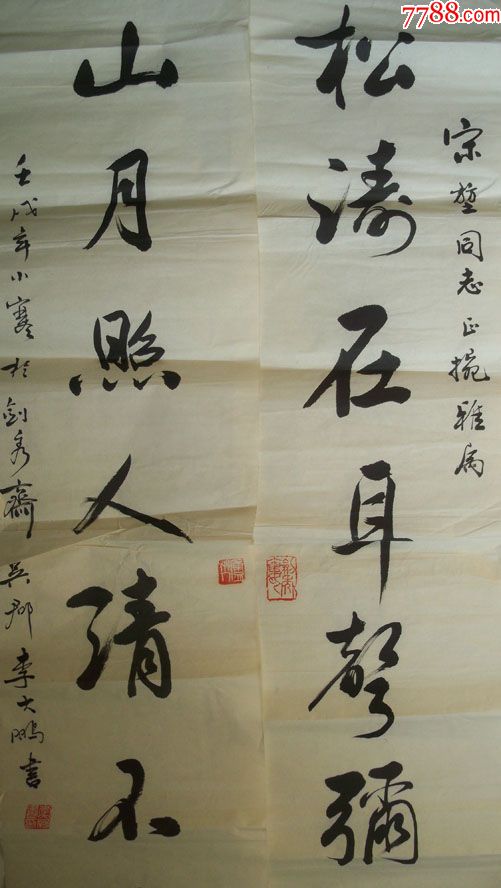 7788.com
宗堃同志正捥雅属
松涛在耳聲彌
山月照人清不
壬戌年小寒於剑秀齋 吴郡 李大鵬書